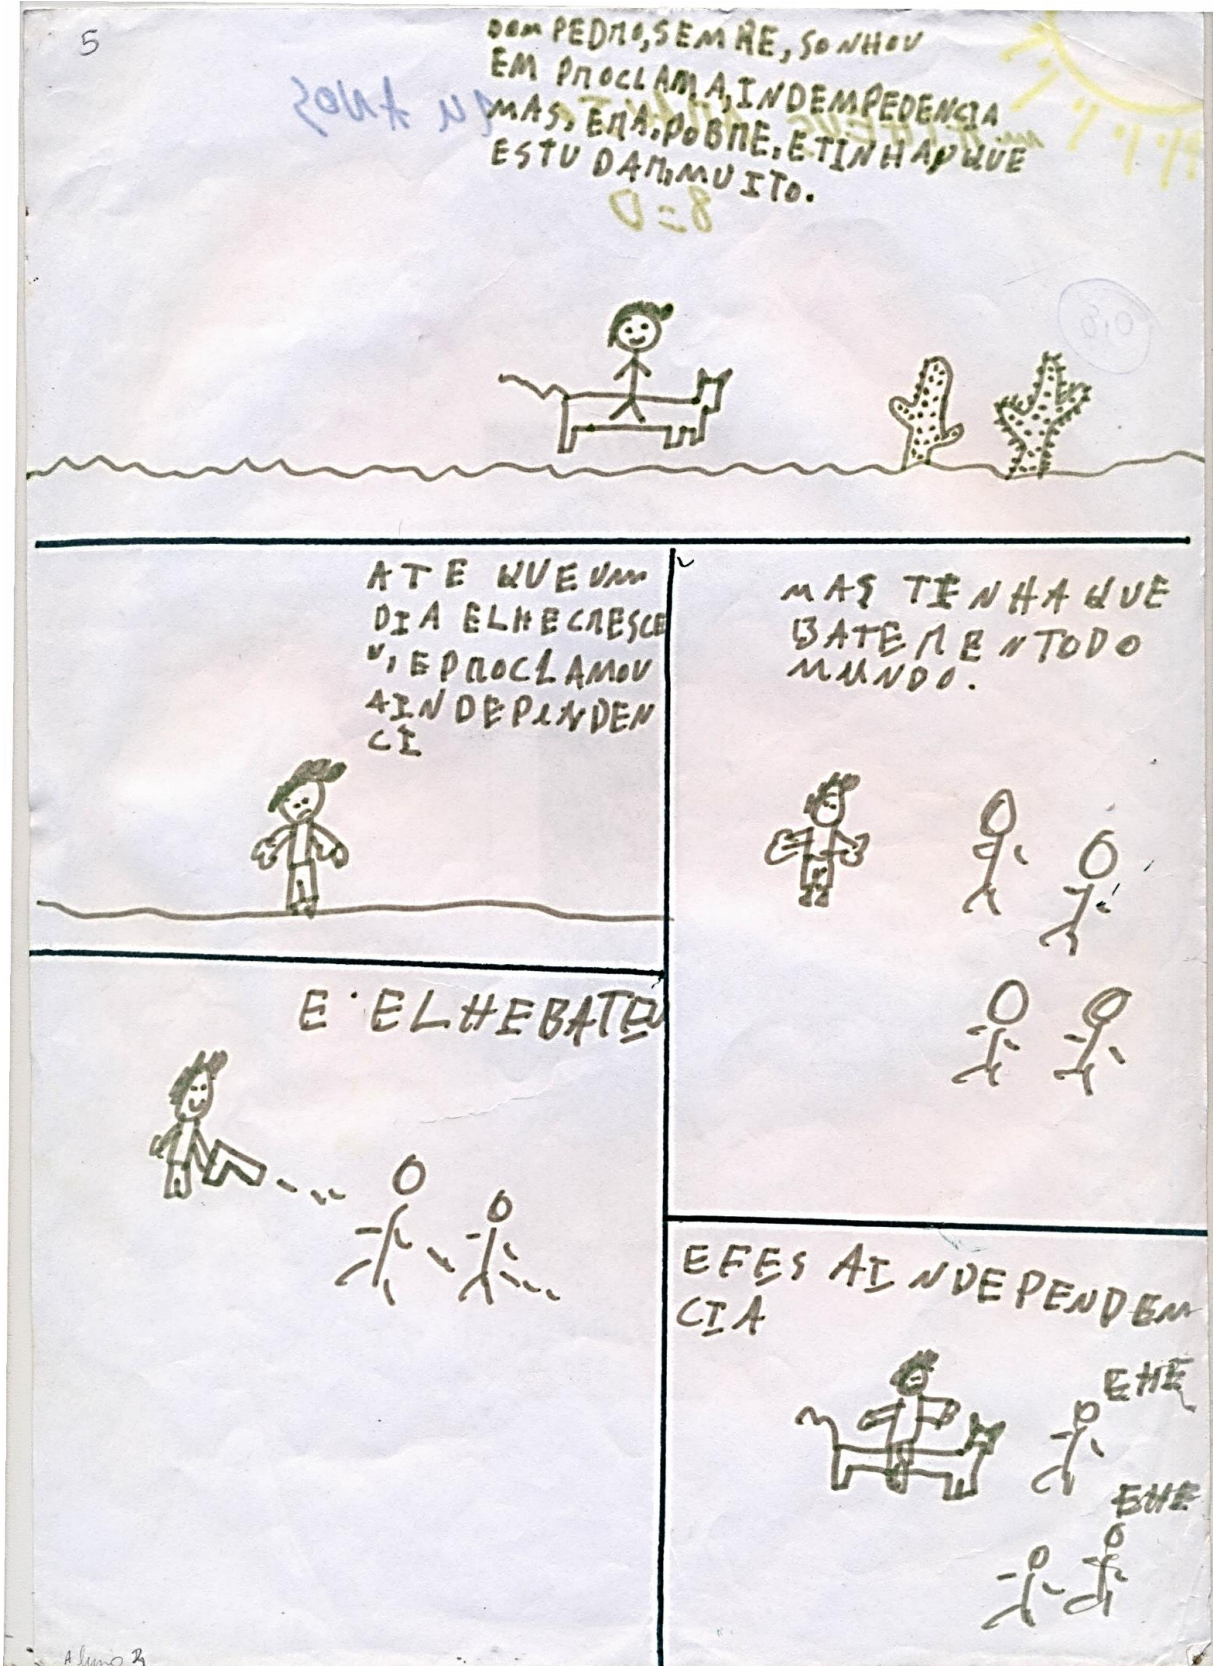 5
DOM PEDRO, SEMRE, SONHOU
EM PROCLAMA, INDEMPEDENCIA
MAS, ERA, POBRE, E TINHA, QUE
ESTUDAR, MUITO.
ATE QUE UM
DIA ELHE CRESCE
U, E PROCLAMOU
AINDEPINDEN
CI
MAS TINHA QUE
BATER EN TODO
MUNDO.
E ELHE BATEU
E FES A INDEPENDEM
CIA
EHE
EHE
Aluno